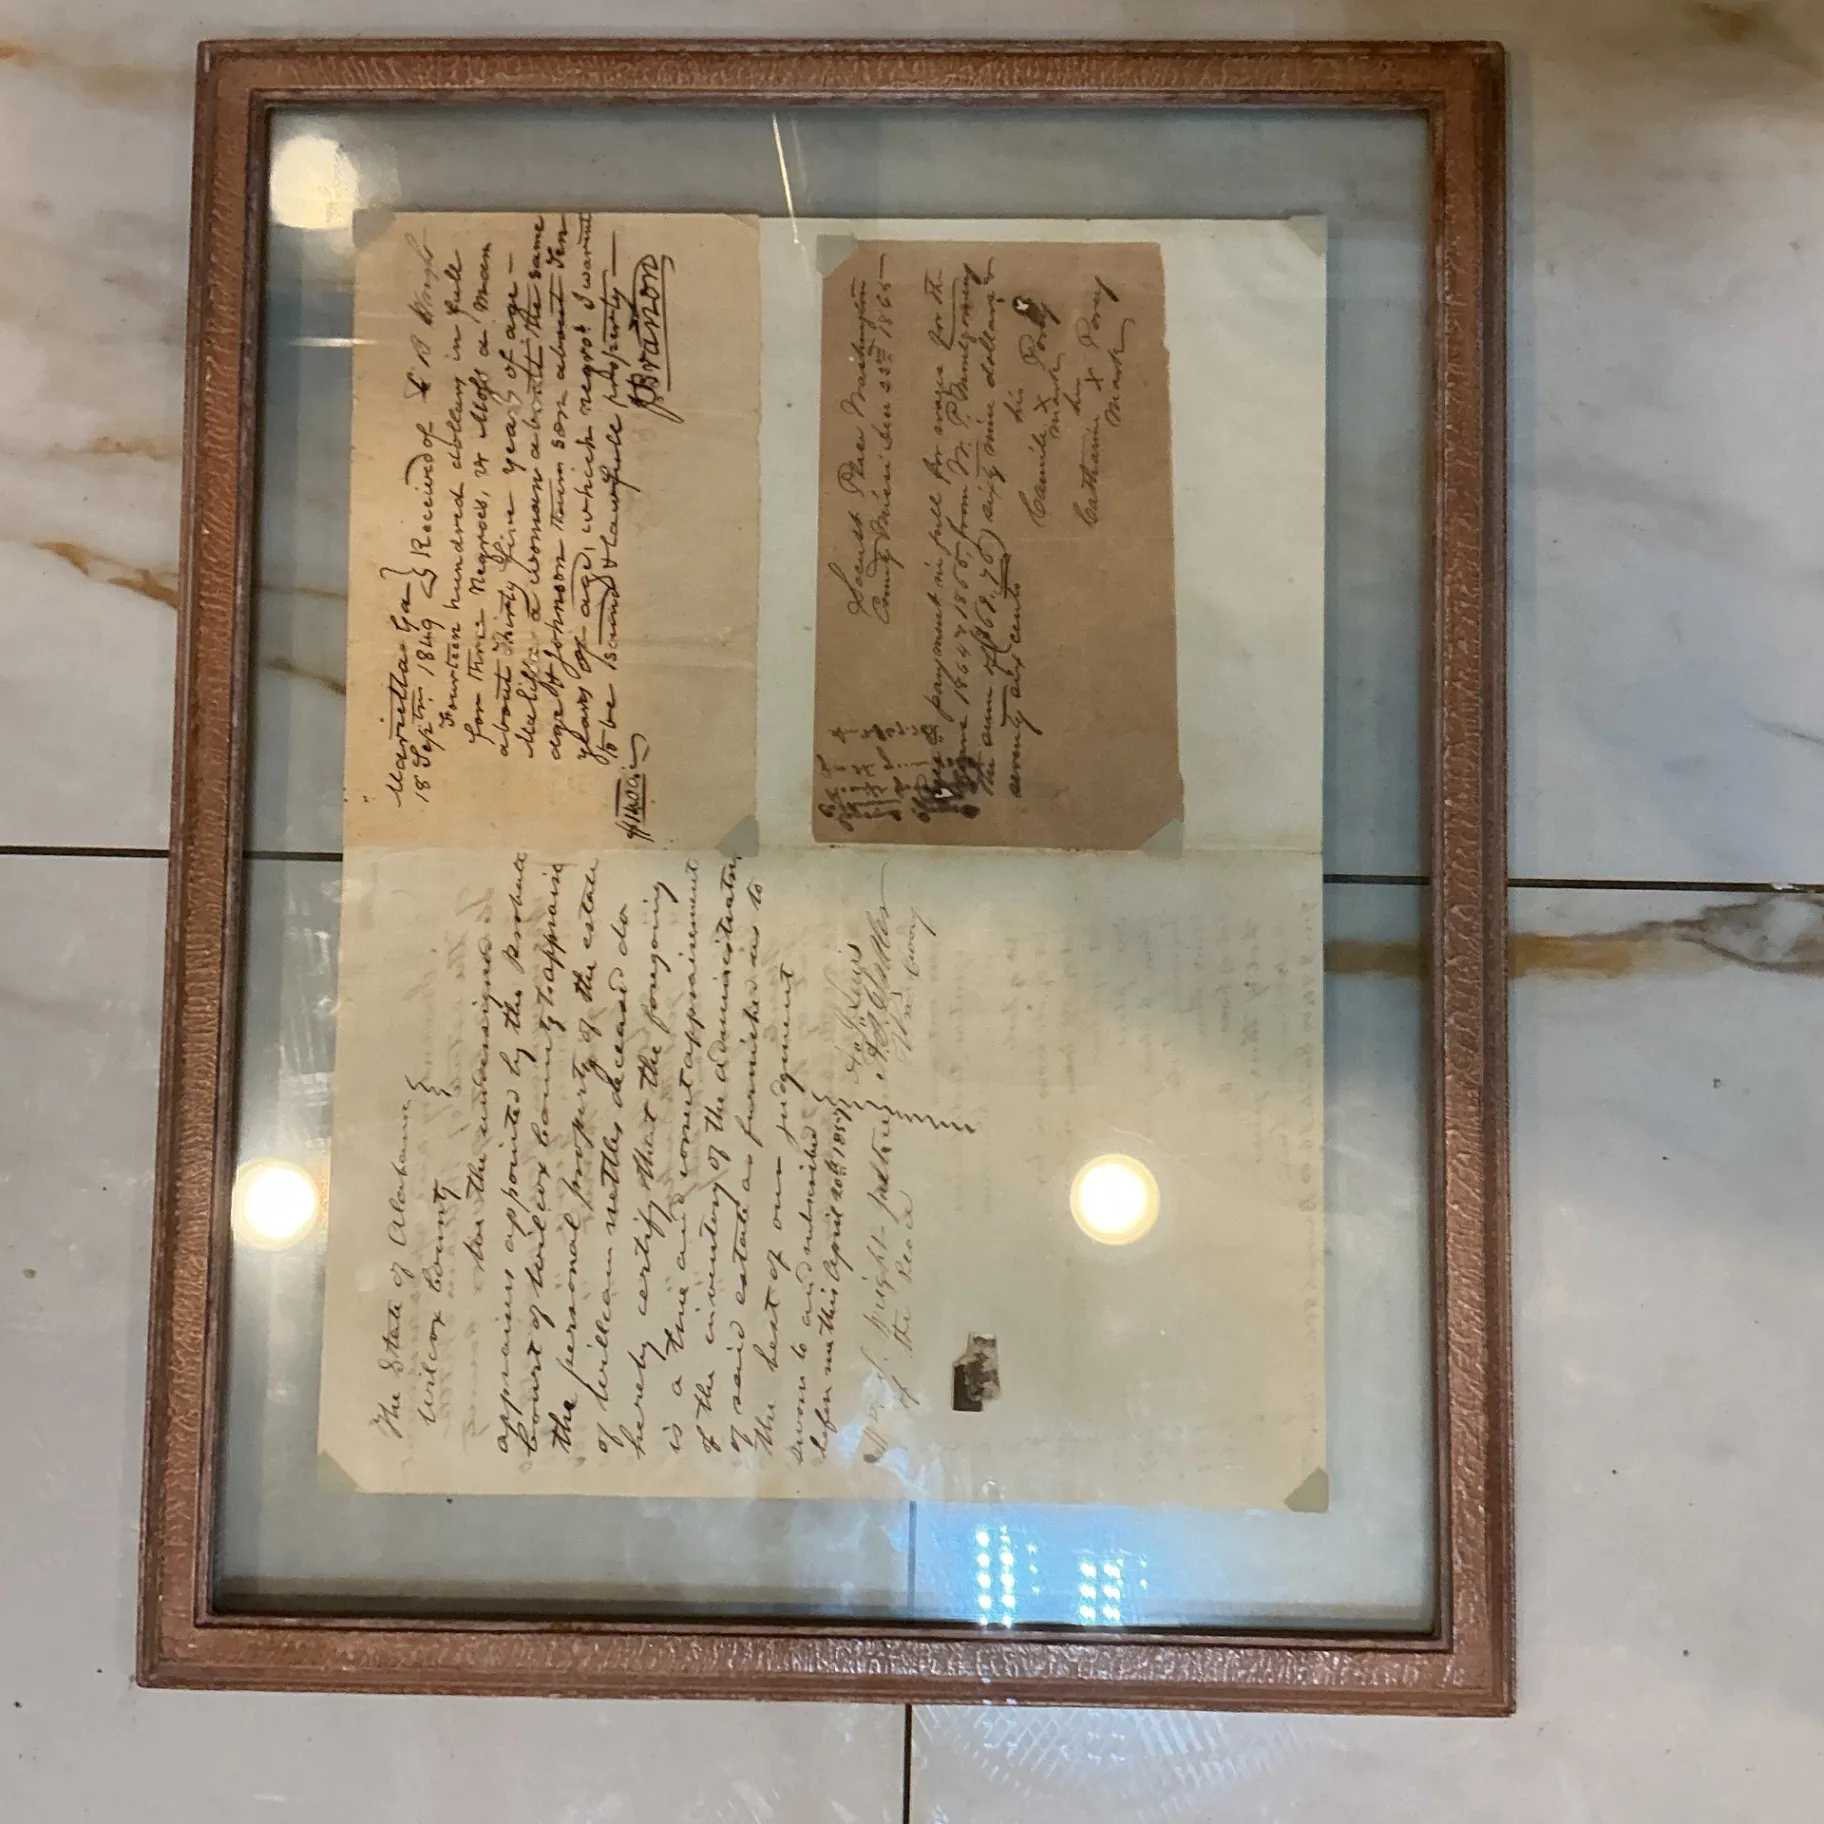 The State of Alabama
Wilcox County
We the undersigned
appraisers appointed by the Probate
Court of Wilcox County to appraise
the personal property of the estate
of William nettles deceased do
hereby certify that the foregoing
is a true and correct appraisement
of the inventory of the administrator
of said estate as furnished us to
the best of our judgment
sworn to and subscribed
before me this April 20th 1857
Wright Justice
of the Peace
Lewis
Marietta Ga
18 Septm. 1849 Received of
Fourteen hundred dollars in full
for three Negroes, viz Moss a Man
about Thirty five years of age -
Malissa a woman about the same
age & Johnson their son about Ten
years of age, which negros I warrant
to be Sound & lawfull property
$1400
J Branon
Locust Place Washington
County Mississippi Dec 25th 1865
payment in full for wages for the
years 1864 & 1865, from W. P. Montgomery
the sum of (69.76) sixty nine dollars &
seventy six cents
his
Camile X Posey
mark
her
Catharine X Posey
Mark